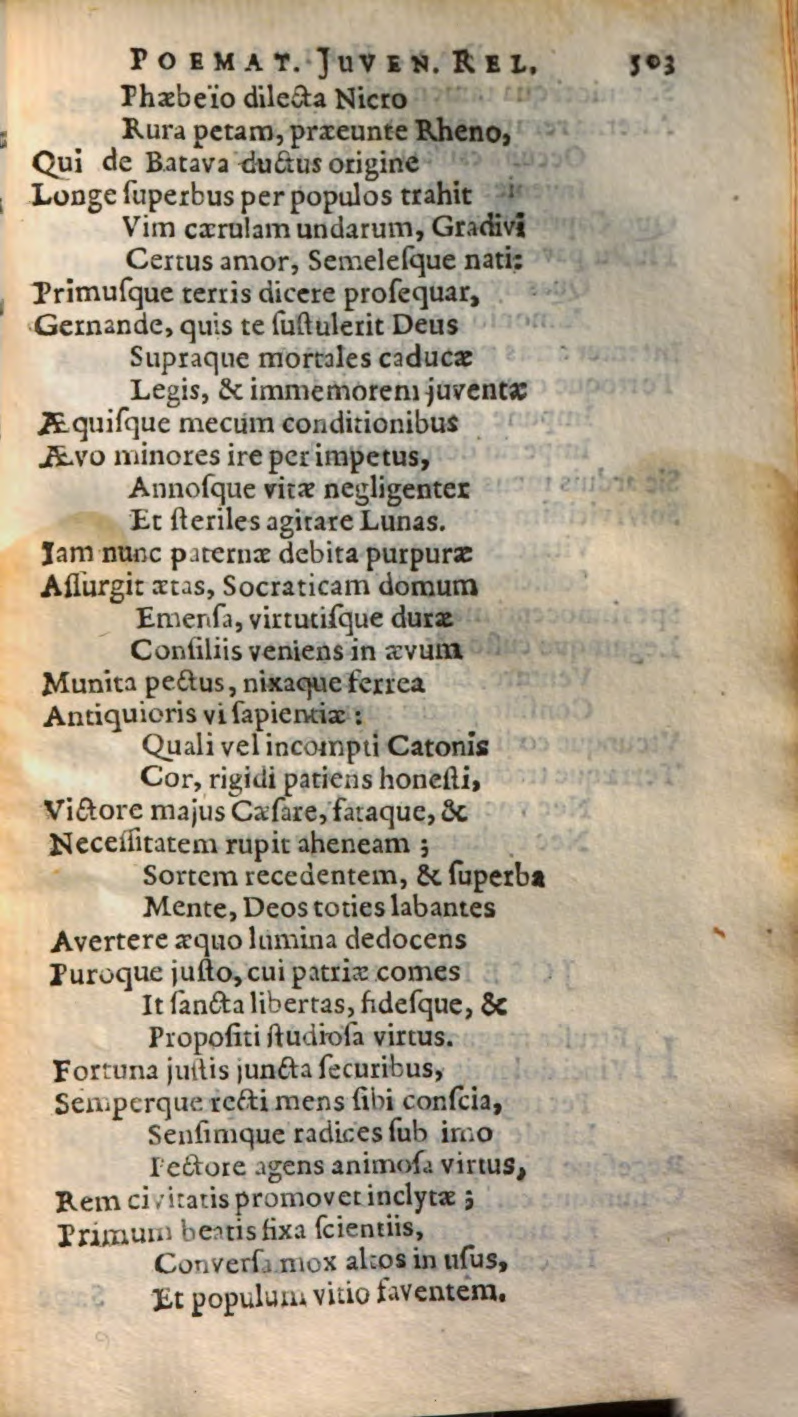 POEMAT. JUVEN. REL. 503
Phæbeïo dilecta Nicro
Rura petam, præeunte Rheno,
Qui de Batava ductus origine
Longe ſuperbus per populos trahit
Vim cærulam undarum, Gradivi
Certus amor, Semeleſque nati:
Primuſque terris dicere proſequar,
Gernande, quis te ſuſtulerit Deus
Supraque mortales caducæ
Legis, & immemorem juventæ
Æquiſque mecum conditionibus
Ævo minores ire per impetus,
Annoſque vitæ negligenter
Et ſteriles agitare Lunas.
Jam nunc paternæ debita purpuræ
Aſſurgit ætas, Socraticam domum
Emenſa, virtutiſque duræ
Conſiliis veniens in ævum
Munita pectus, nixaque ferrea
Antiquioris vi ſapientiæ:
Quali vel incompti Catonis
Cor, rigidi patiens honeſti,
Victore majus Cæſare, fataque, &
Neceſſitatem rupit aheneam;
Sortem recedentem, & ſuperba
Mente, Deos toties labantes
Avertere æquo lumina dedocens
Puroque juſto, cui patriæ comes
It ſancta libertas, fideſque, &
Propoſiti ſtudioſa virtus.
Fortuna juſtis juncta ſecuribus,
Semperque recti mens ſibi conſcia,
Senſimque radices ſub imo
Pectore agens animoſa virtus,
Rem civitatis promovet inclytæ;
Primum beatis fixa ſcientiis,
Converſa mox altos in uſus,
Et populum vitio faventem.